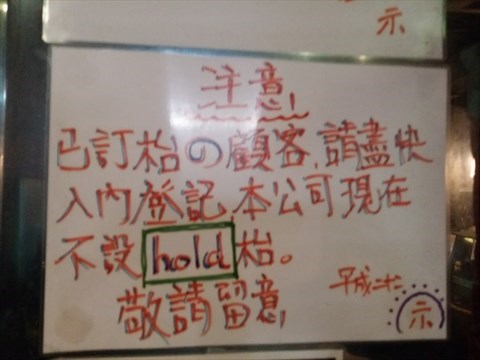 示
注意
已訂枱の顧客,請盡快
入內登記,本公司現在
不設hold枱。
敬請留意
平成二十
示